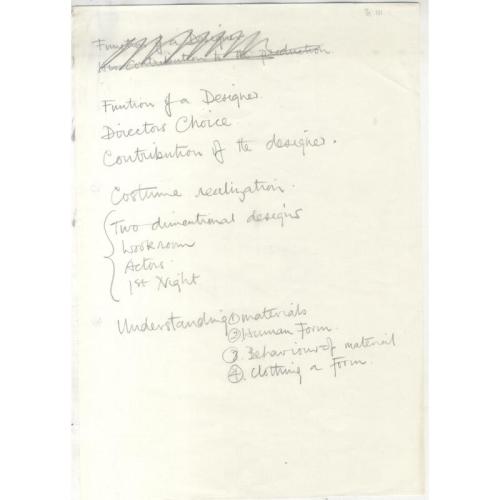 Function of a Designer
His contribution to the production
Funtion of a Designer.
Directors Choice
Contribution of the designer.
Costume realization.
Two dimentional designs
Workroom
Actors.
1st Night
Understanding ① materials
② Human Form.
③. Behaviour of material
④. Clothing a Form.